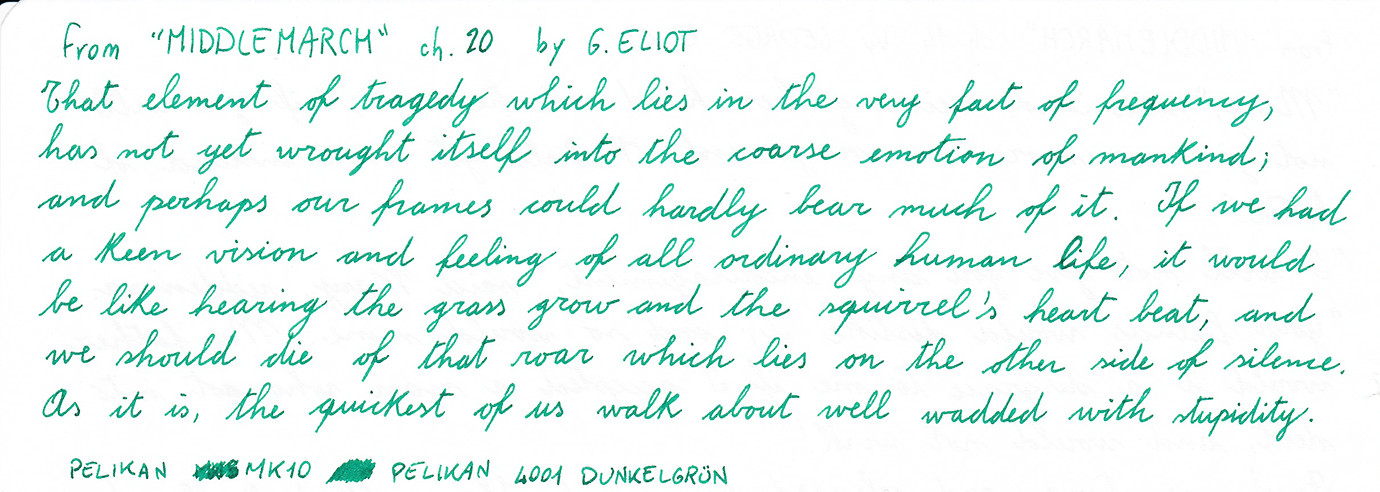 From "MIDDLEMARCH" ch. 20 by G. ELIOT
That element of tragedy which lies in the very fact of frequency,
has not yet wrought itself into the coarse emotion of mankind;
and perhaps our frames could hardly bear much of it. If we had
a keen vision and feeling of all ordinary human life, it would
be like hearing the grass grow and the squirrel's heart beat, and
we should die of that roar which lies on the other side of silence.
As it is, the quickest of us walk about well wadded with stupidity.
PELIKAN MK10 PELIKAN 4001 DUNKELGRÜN